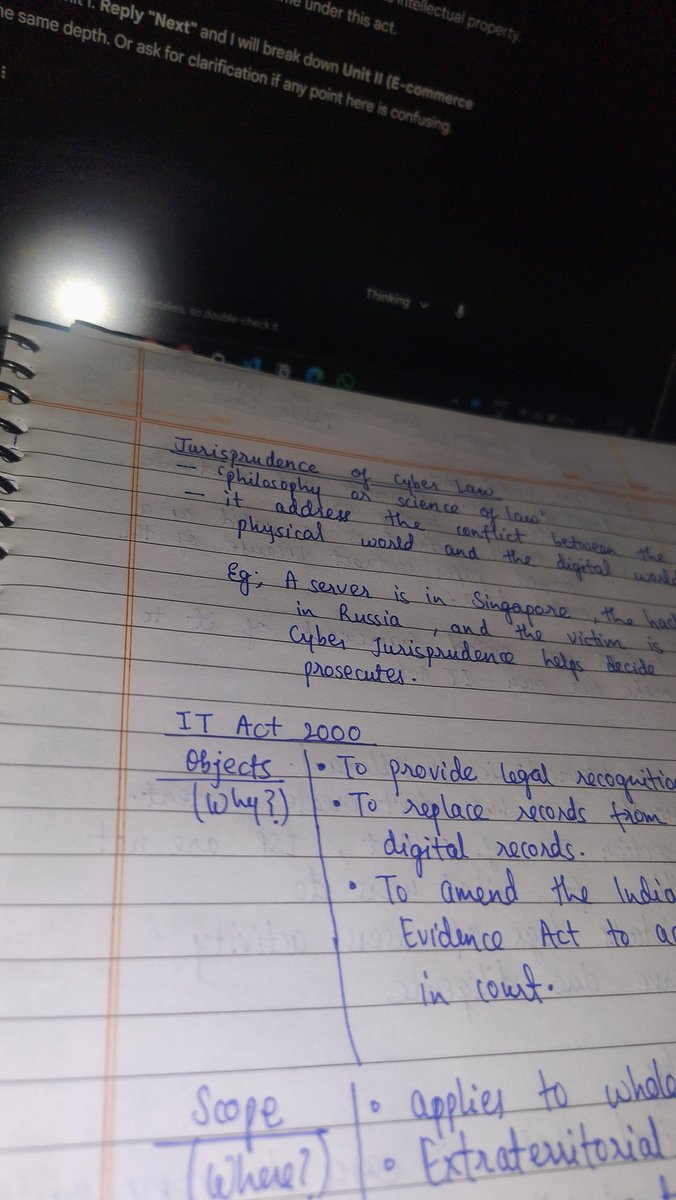 intellectual property.
under this act.
Reply "Next" and I will break down Unit II (E-commerce
same depth. Or ask for clarification if any point here is confusing.
Thinking
mistakes, so double-check it
Jurisprudence of Cyber Law
– 'philosophy or science of law'
– it address the conflict between the
physical world and the digital world
Eg; A server is in Singapore, the
in Russia, and the victim is
Cyber Jurisprudence helps decide
prosecutes.
IT Act 2000
Objects
(Why?)
• To provide legal
• To replace records from
digital records.
• To amend the
Evidence Act to
in court.
Scope
(Where?)
• applies to
• Extraterritorial